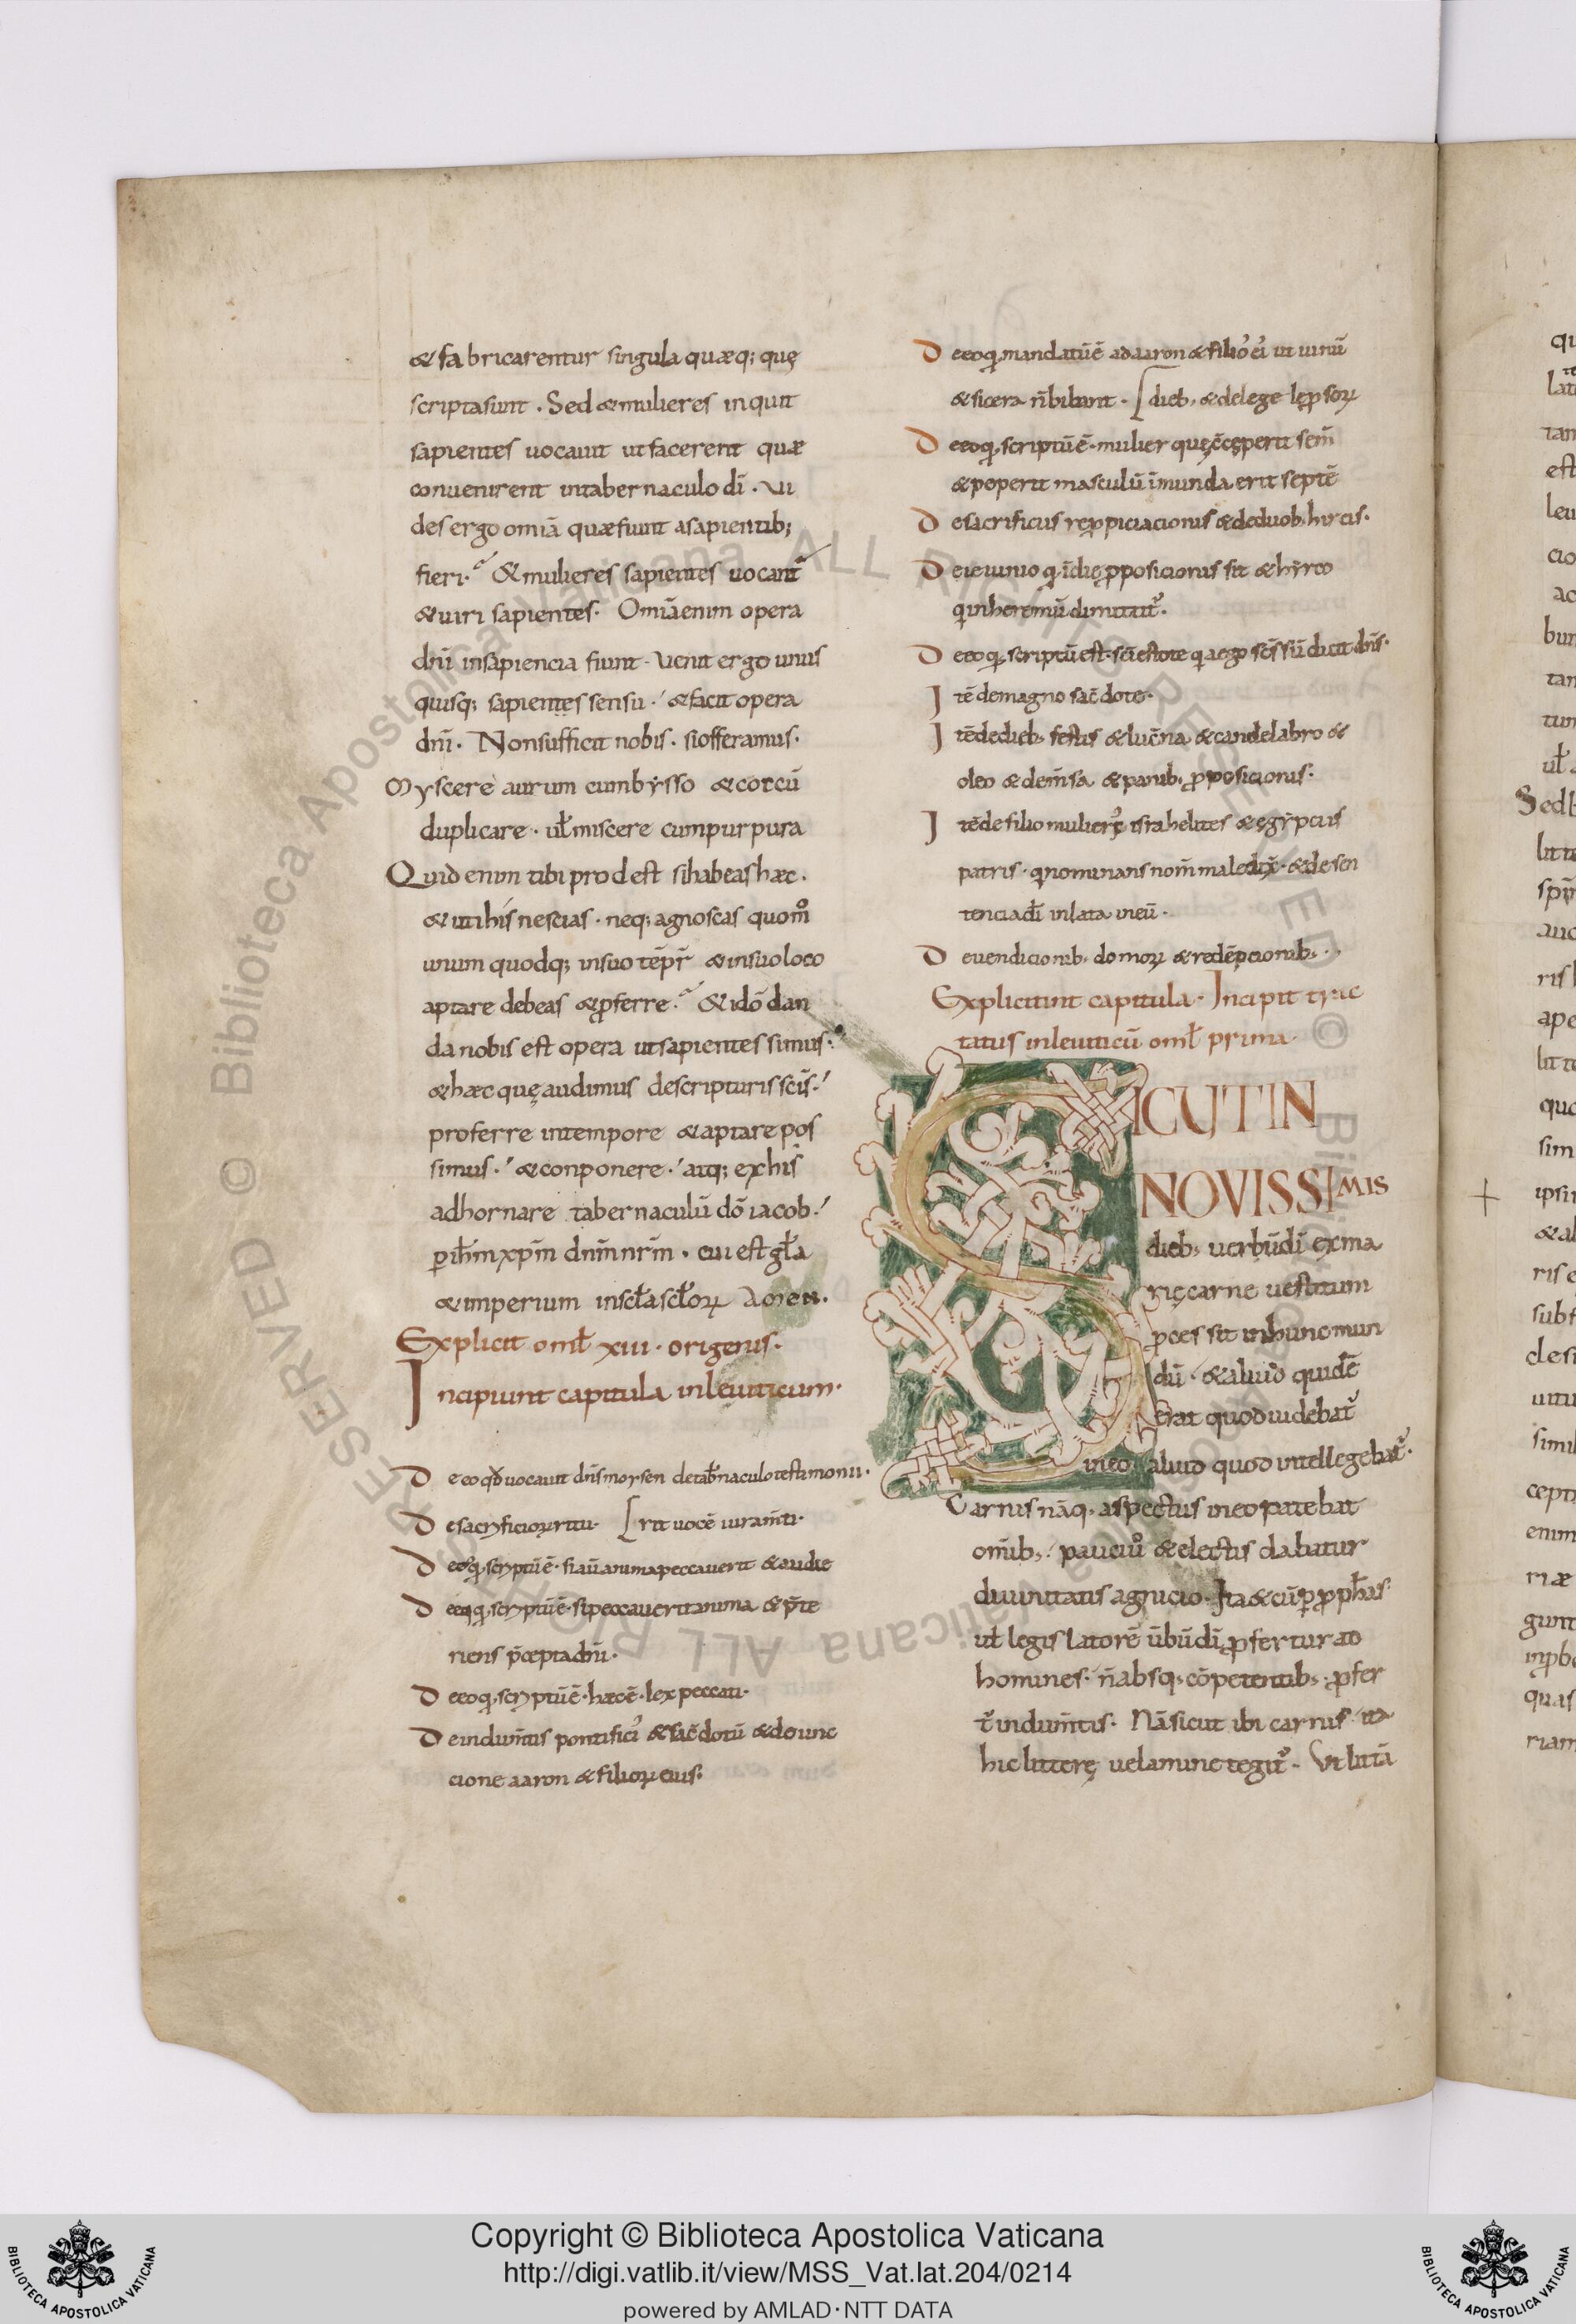 & fabricarentur singula quæq; quę
scripta sunt . Sed & mulieres inquit
sapientes uocauit ut facerent quæ
conuenirent in tabernaculo dī . Vi
des ergo om̄ia quæ fiunt a sapientib;
fieri . & mulieres sapientes uocant̄
& uiri sapientes . Omīa enim opera
dnī in sapiencia fiunt . Venit ergo unus
quisq; sapientes sensu . & facit opera
dnī . Non sufficit nobis . si offeramus .
Myscere aurum cum bysso & cotcū
duplicare . ul̄ miscere cum purpura
Quid enim tibi prodest si habeas hæc .
& uti his nescias . neq; agnoscas quom̊
unum quodq; in suo tēpr̄ & in suo loco
aptare debeas & ꝓferre . & idō dan
da nobis est opera ut sapientes simus .
& hæc quę audimus de scripturis scīs .
proferre in tempore & aptare pos
simus . & conponere . atq; ex his
adhornare tabernaculū dō iacob .
ꝑ ih̄m xp̄m dn̄m nr̄m . cui est gl̄a
& imperium in scl̄a scl̄oꝝ Amen .
Explicit omel̄ xiii . origenis .
Incipiunt capitula in leuiticum .
De eo qd̄ uocauit dn̄s moysen de tab̄naculo testimonii .
De sacryficioꝝ ritu . [rit uocē iuram̄ti .
De eo q, scryptū ē . si aū anima peccauerit & audie
De eo q, scryptū ē . si peccauerit anima & p̄te
riens p̄cepta dnī .
De eo q, scryptū ē . hæc ē . lex peccati .
De indum̄tis pontifici & sac̄dotū & de unc
cione aaron & filioꝝ eius .
De eo q, mandatū ē ad aaron & filio ei ut uinū
& sicera n̄ bibant . [dieb, & de lege lep̄soꝝ
De eo q, scriptū ē . mulier quę c̄ceperit sem̄
& peperit masculū īmunda erit septē
De sacrificiis rep̄piciacionis & de duob, hircis .
De ieiunio q, ī die ꝓposicionis fit & hyrco
q in heremū dimittit᷑ .
De eo q, scriptū est . scī estote q a ego sc̄s sū dicit dn̄s .
Itē de magno sac̄dote .
Itē de dieb, festis & luc̄na & candelabro &
oleo & dem̄sa & panib, ꝓposicionis .
Itē de filio mulieꝝ israhelites & ęgypcius
patris . q nominans nom̄ maledix̄ . & de sen
tencia dī inlata in eū .
De uendicionib, domoꝝ & redēpcionib, . .
Expliciunt capitula . Incipit trac
tatus in leuiticū omel̄ prima .
SICUT IN
NOVISSIMIS
dieb, uerbū dī ex ma
rię carne uestitum
ꝓcessit in hunc mun
dū . & aliud quidē
erat quod uidebat᷑
in eo aliud quod intellegebat᷑ .
Carnis nāq, aspectus in eo patebat
om̄ib, . pauciu̇ & electis dabatur
diuinitatis agnicio . Ita & cū ꝑ ꝓph̄as
ul̄ legis latorē ūbū dī ꝓfertur ad
homines . n̄ absq, cōpetentib, . ꝓfer
t᷑ indum̄tis . Nā sicut ibi carnis . ita
hic litterę uelamine tegit᷑ . Vt litt̄ā
Copyright © Biblioteca Apostolica Vaticana
http://digi.vatlib.it/view/MSS_Vat.lat.204/0214
powered by AMLAD·NTT DATA
BIBLIOTECA APOSTOLICA VATICANA
BIBLIOTECA APOSTOLICA VATICANA